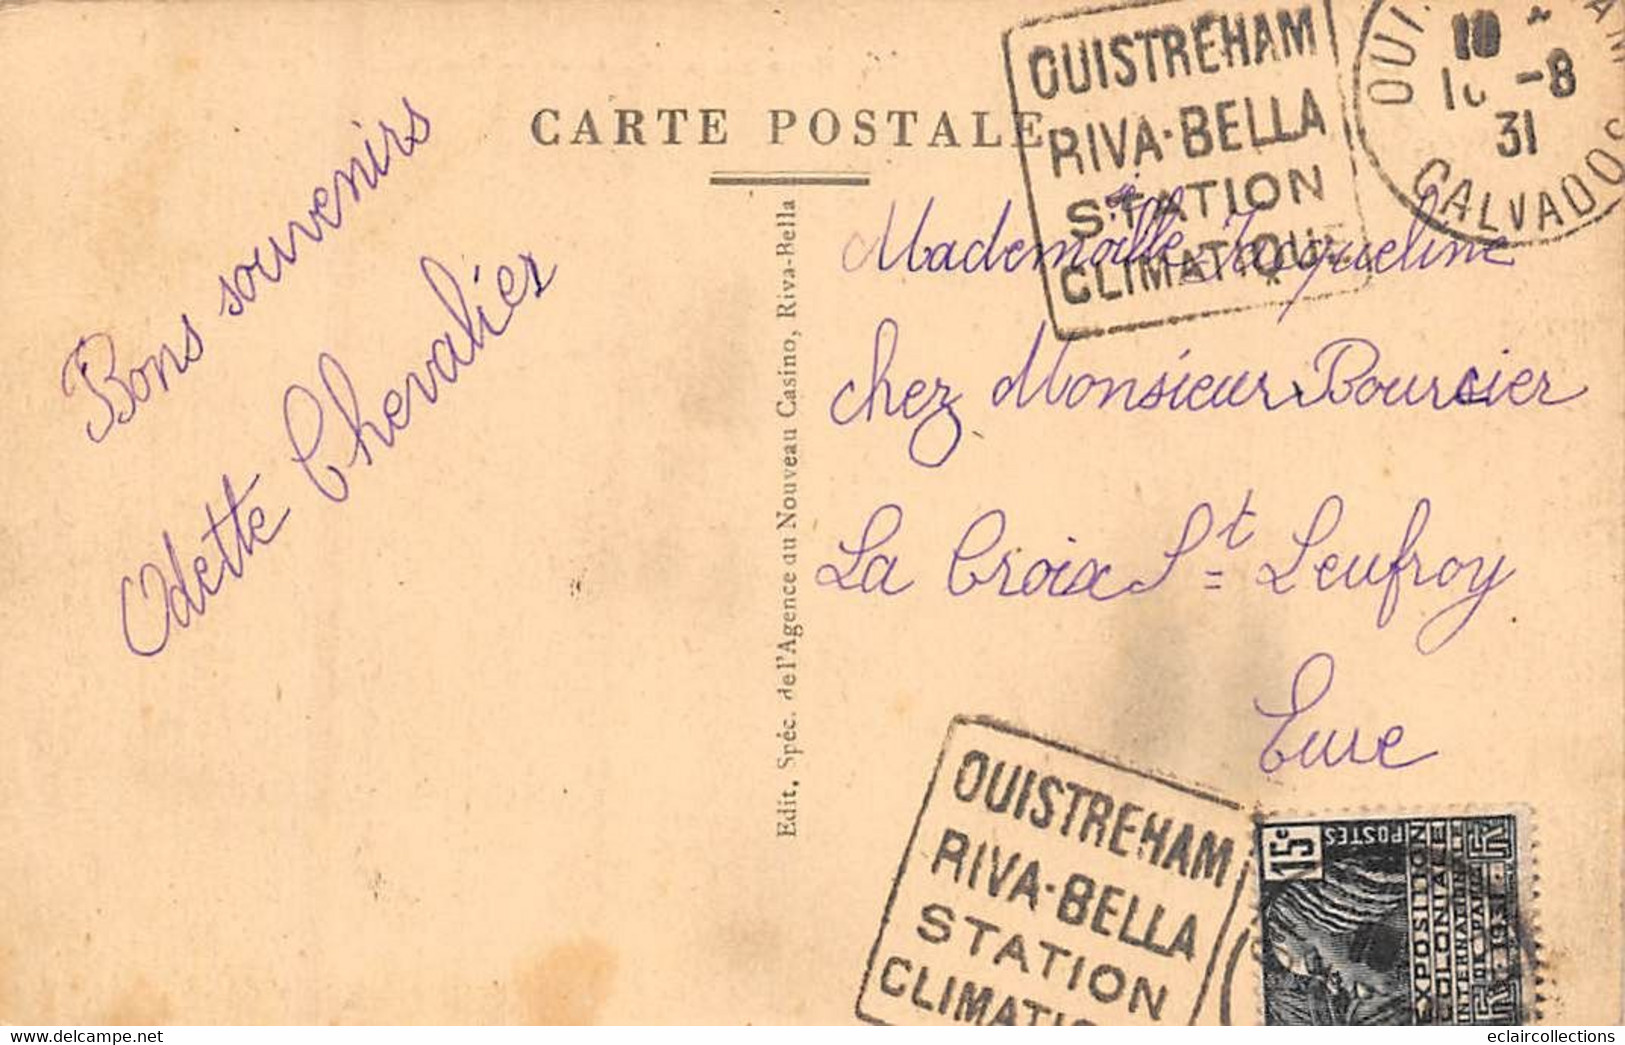 CARTE POSTALE
Bons souvenirs
Odette Chevalier
Edit. Spéc. de l'Agence du Nouveau Casino, Riva-Bella
OUISTREHAM
RIVA-BELLA
STATION
CLIMATIQUE
10
-8
31
CALVADOS
Mademoiselle Jacqueline
chez Monsieur Bourcier
La Croix St Leufroy
Eure
OUISTREHAM
RIVA-BELLA
STATION
15c
POSTES
EXPOSITION
COLONIALE
INTERNATIONALE
DE PARIS
1931
delcampe.net
eclaircollections